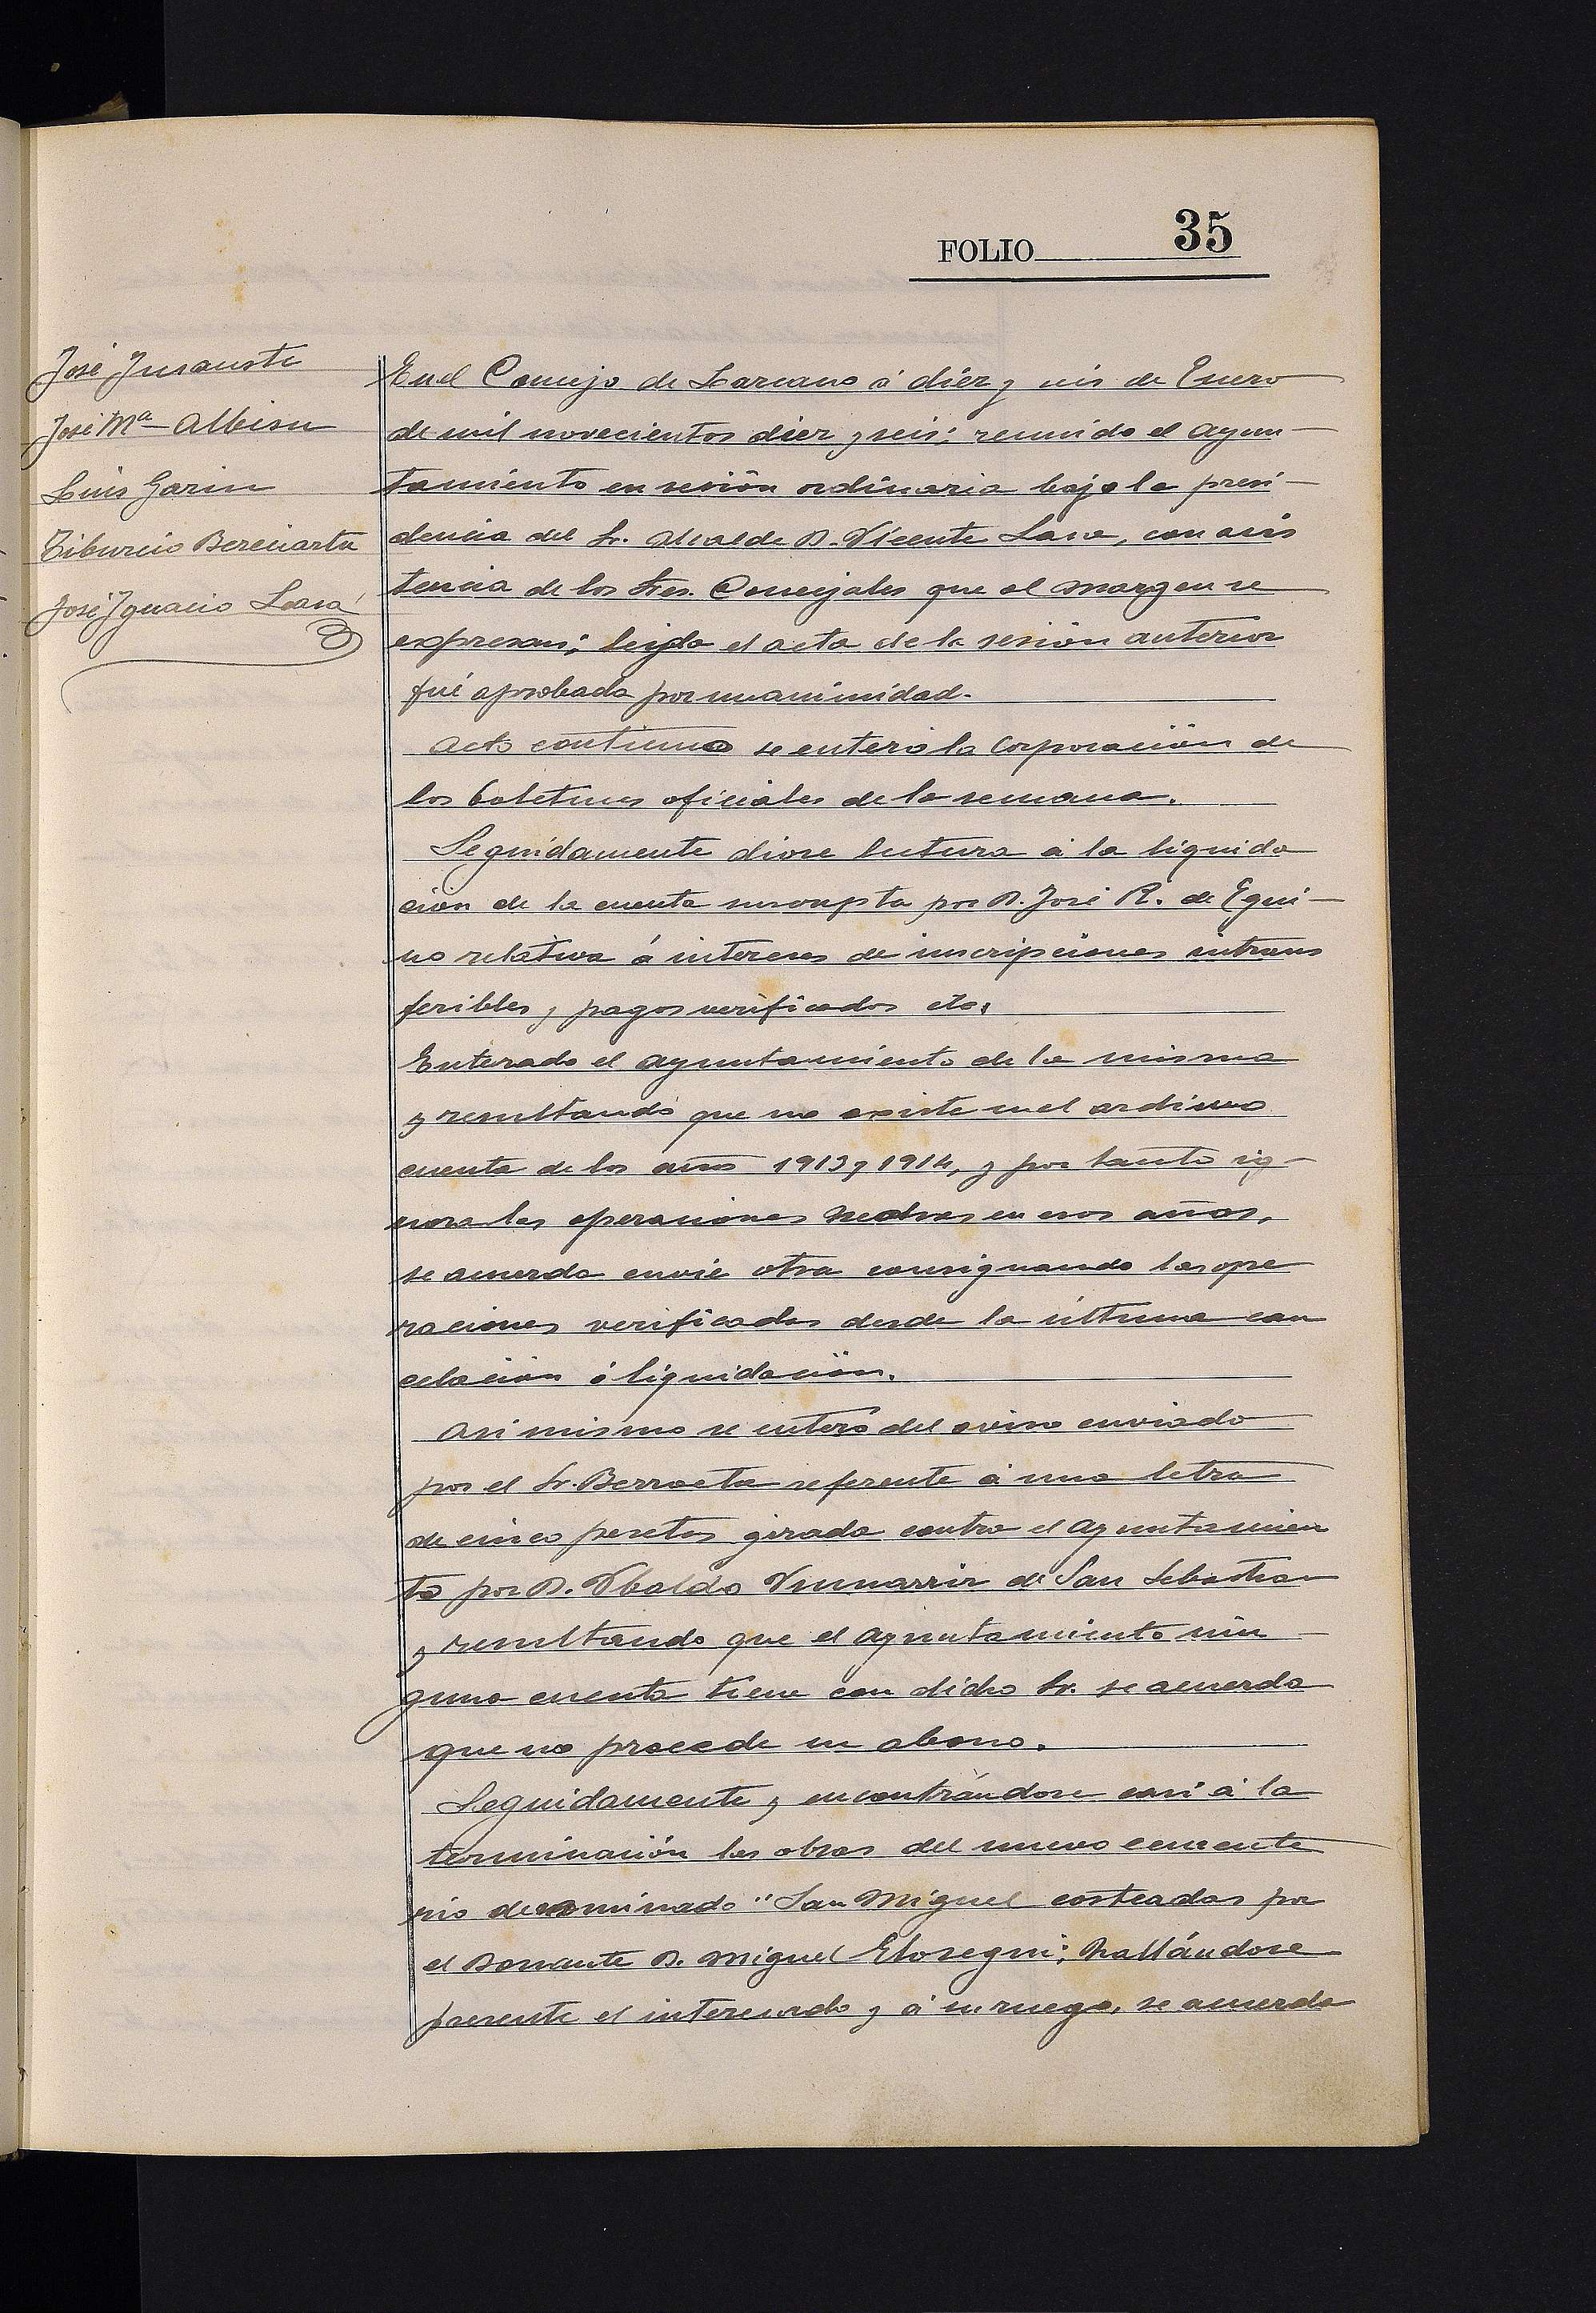 FOLIO 35
José Insausti
José Mª Albisu
Luis Garin
Tiburcio Bereciartu
José Ignacio Lasa
En el Concejo de Lazcano á diéz y seis de Enero
de mil novecientos diez y seis; reunido el ayun-
tamiento en sesión ordinaria bajo la presi-
dencia del Sr. Alcalde D. Vicente Lasa, con asis
tencia de los Sres. Concejales que al margen se
expresan; leyda el acta de la sesión anterior
fué aprobada por unanimidad.
Acto continuo se enteró la Corporación de
los boletines oficiales de la semana.
Seguidamente diose lectura á la liquida
ción de la cuenta suscripta por D. José R. de Egui-
no relativa á intereses de inscripciones intrans
feribles y pagos verificados etc.
Enterado el ayuntamiento de la misma
y resultando que no existe en el archivo
cuenta de los años 1913 y 1914, y por tanto ig-
nora las operaciones hechas en esos años,
se acuerda envie otra consignando las ope
raciones verificadas desde la última can
celación ó liquidación.
Asi mismo se enteró del aviso enviado
por el Sr. Berroeta referente á una letra
de cinco pesetas girada contra el Ayuntamien
to por D. Ubaldo de San Sebastian
y resultando que el Ayuntamiento nin-
guna cuenta tiene con dicho Sr. se acuerda
que no procede su abono.
Seguidamente y encontrándose casi á la
terminación las obras del nuevo cemente
rio denominado "San Miguel costeadas por
el Donante D. Miguel Elosegui; hallándose
presente el interesado y á su ruego, se acuerda